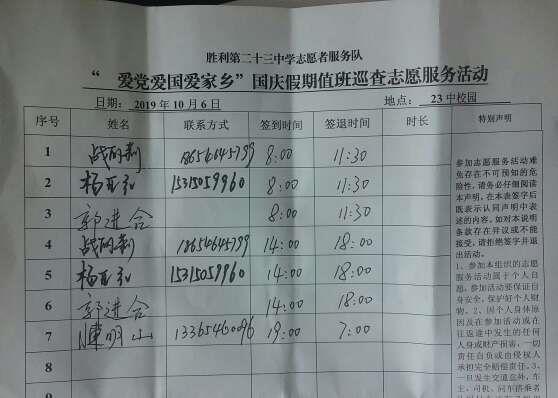 胜利第二十三中学志愿者服务队
“爱党爱国爱家乡”国庆假期值班巡查志愿服务活动
日期： 2019 年 10 月 6 日 地点： 23 中校园
序号 姓名 联系方式 签到时间 签退时间 时长 特别声明
1 8:00 11:30
2 15315059960 8:00 11:30
3 郭进合 8:00 11:30
4 14:00 18:00
5 15315059960 14:00 18:00
6 郭进合 14:00 18:00
7 陈明山 13365460096 19:00 7:00
8
参加志愿服务活动难
免存在不可预知的危
险性，请务必仔细阅读
本声明，在本表签字后
既表示认同声明中表
述的内容。如对本说明
条款存在异议或不能
接受，请拒绝签字并退
出活动。
1、参加本组织的志愿
服务活动属于个人自
愿，参加活动要保证自
身安全，保护好个人财
物。2、因个人身体原
因及在参加活动或在
往返途中发生的任何
人身或财产损害，一切
责任自负或由侵权人
承担完全赔偿责任。3、
一旦发生交通意外，车
主、司机、同车搭乘者